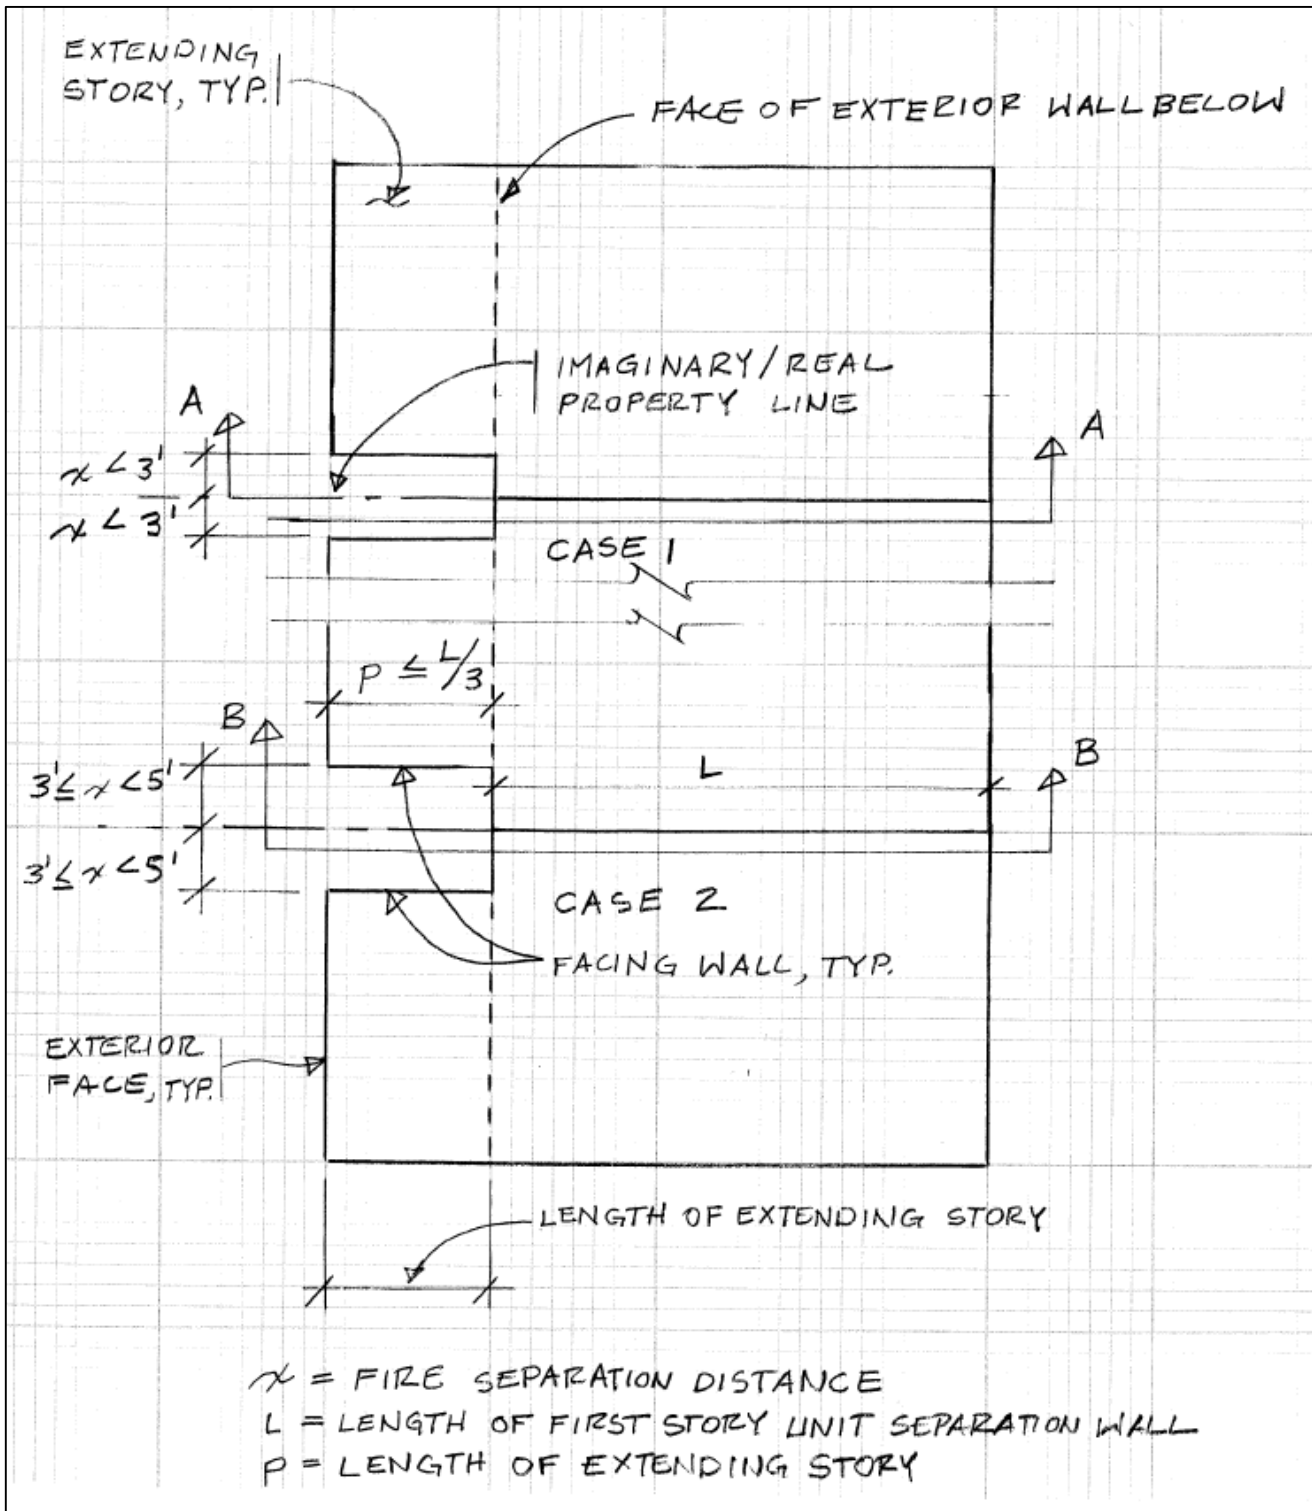 EXTENDING
STORY, TYP.
FACE OF EXTERIOR WALL BELOW
IMAGINARY/REAL
PROPERTY LINE
A
A
x < 3'
x < 3'
CASE 1
P ≤ L/3
B
B
3' ≤ x < 5'
L
3' ≤ x < 5'
CASE 2
FACING WALL, TYP.
EXTERIOR
FACE, TYP.
LENGTH OF EXTENDING STORY
x = FIRE SEPARATION DISTANCE
L = LENGTH OF FIRST STORY UNIT SEPARATION WALL
P = LENGTH OF EXTENDING STORY